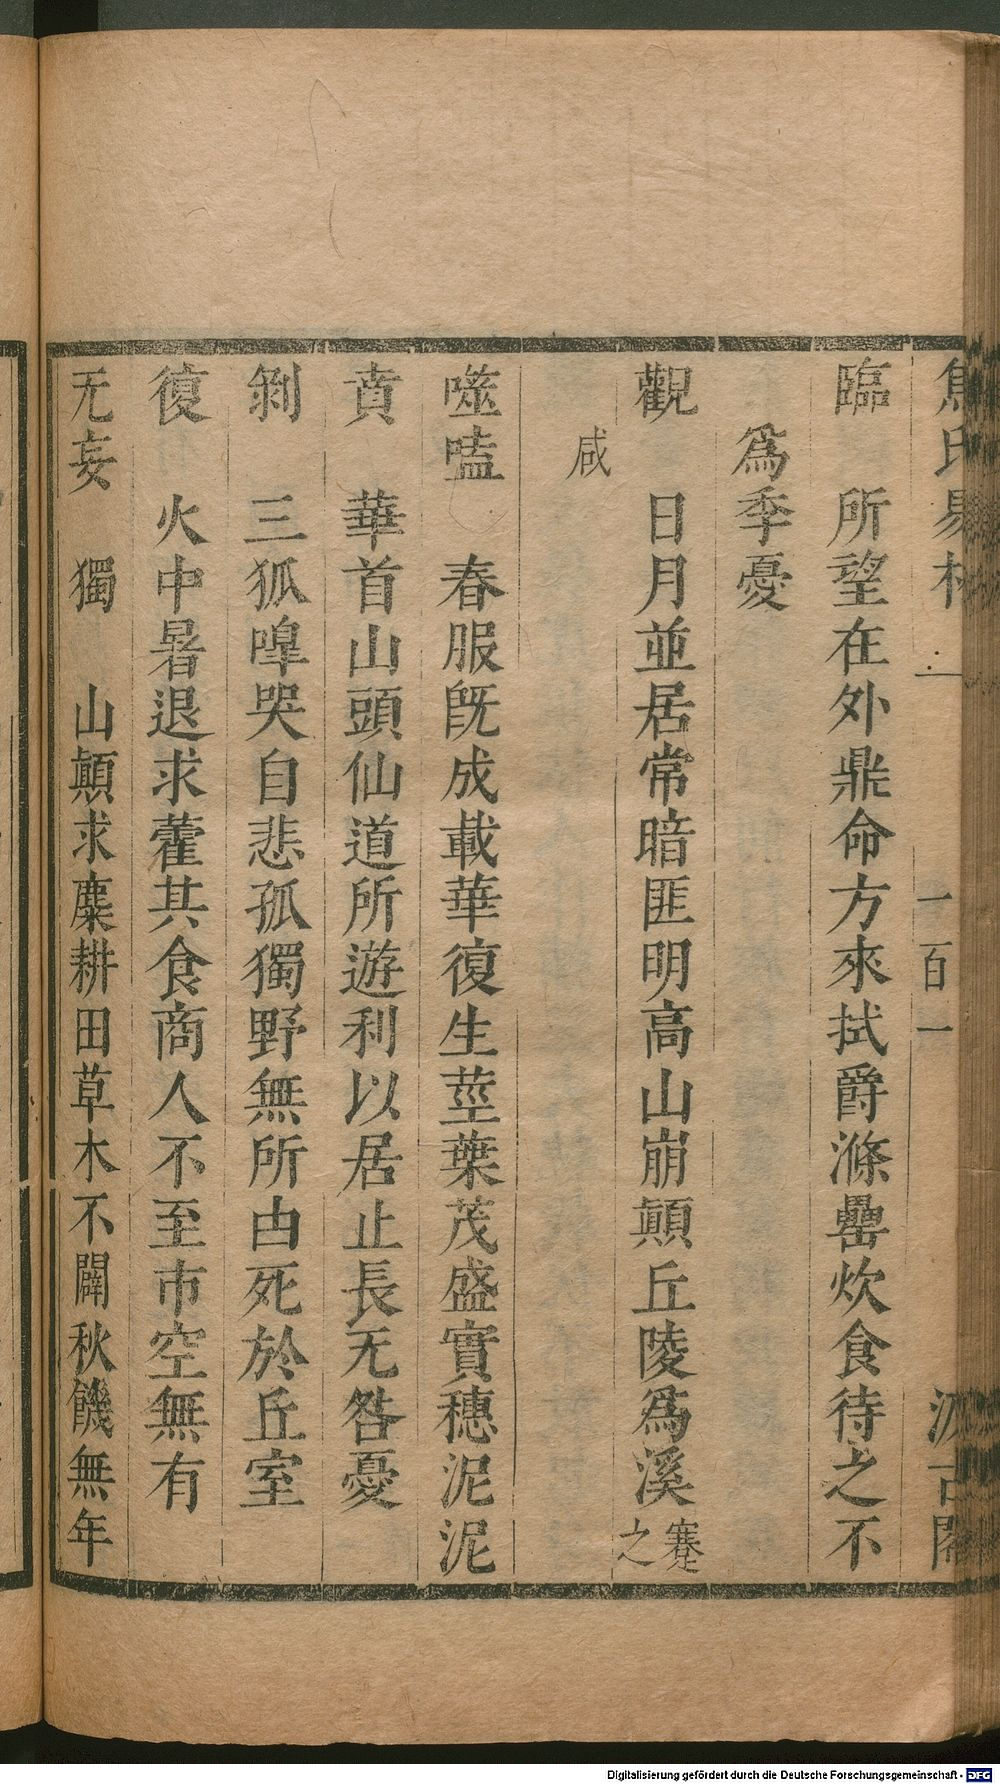 焦氏易林 一 一百一 汲古閣
臨 所望在外鼎命方來拭爵滌罍炊食待之不
爲季憂
觀 日月並居常暗匪明高山崩顛丘陵爲溪蹇之
咸
噬嗑 春服既成載華復生莖葉茂盛實穗泥泥
賁 華首山頭仙道所遊利以居止長无咎憂
剝 三狐嘷哭自悲孤獨野無所由死於丘室
復 火中暑退求藿其食商人不至市空無有
无妄 獨 山顛求麋耕田草木不闢秋饑無年
Digitalisierung gefördert durch die Deutsche Forschungsgemeinschaft - DFG